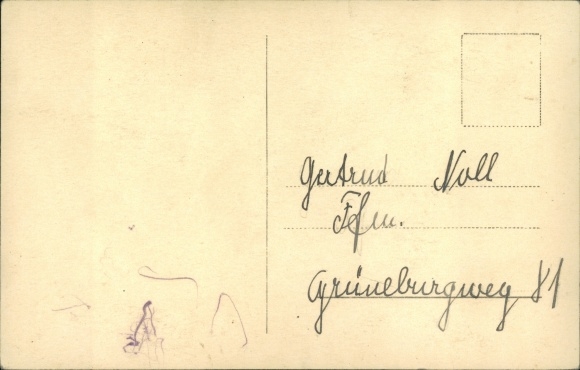 Gertrud Noll
Ffm.
Grüneburgweg 81